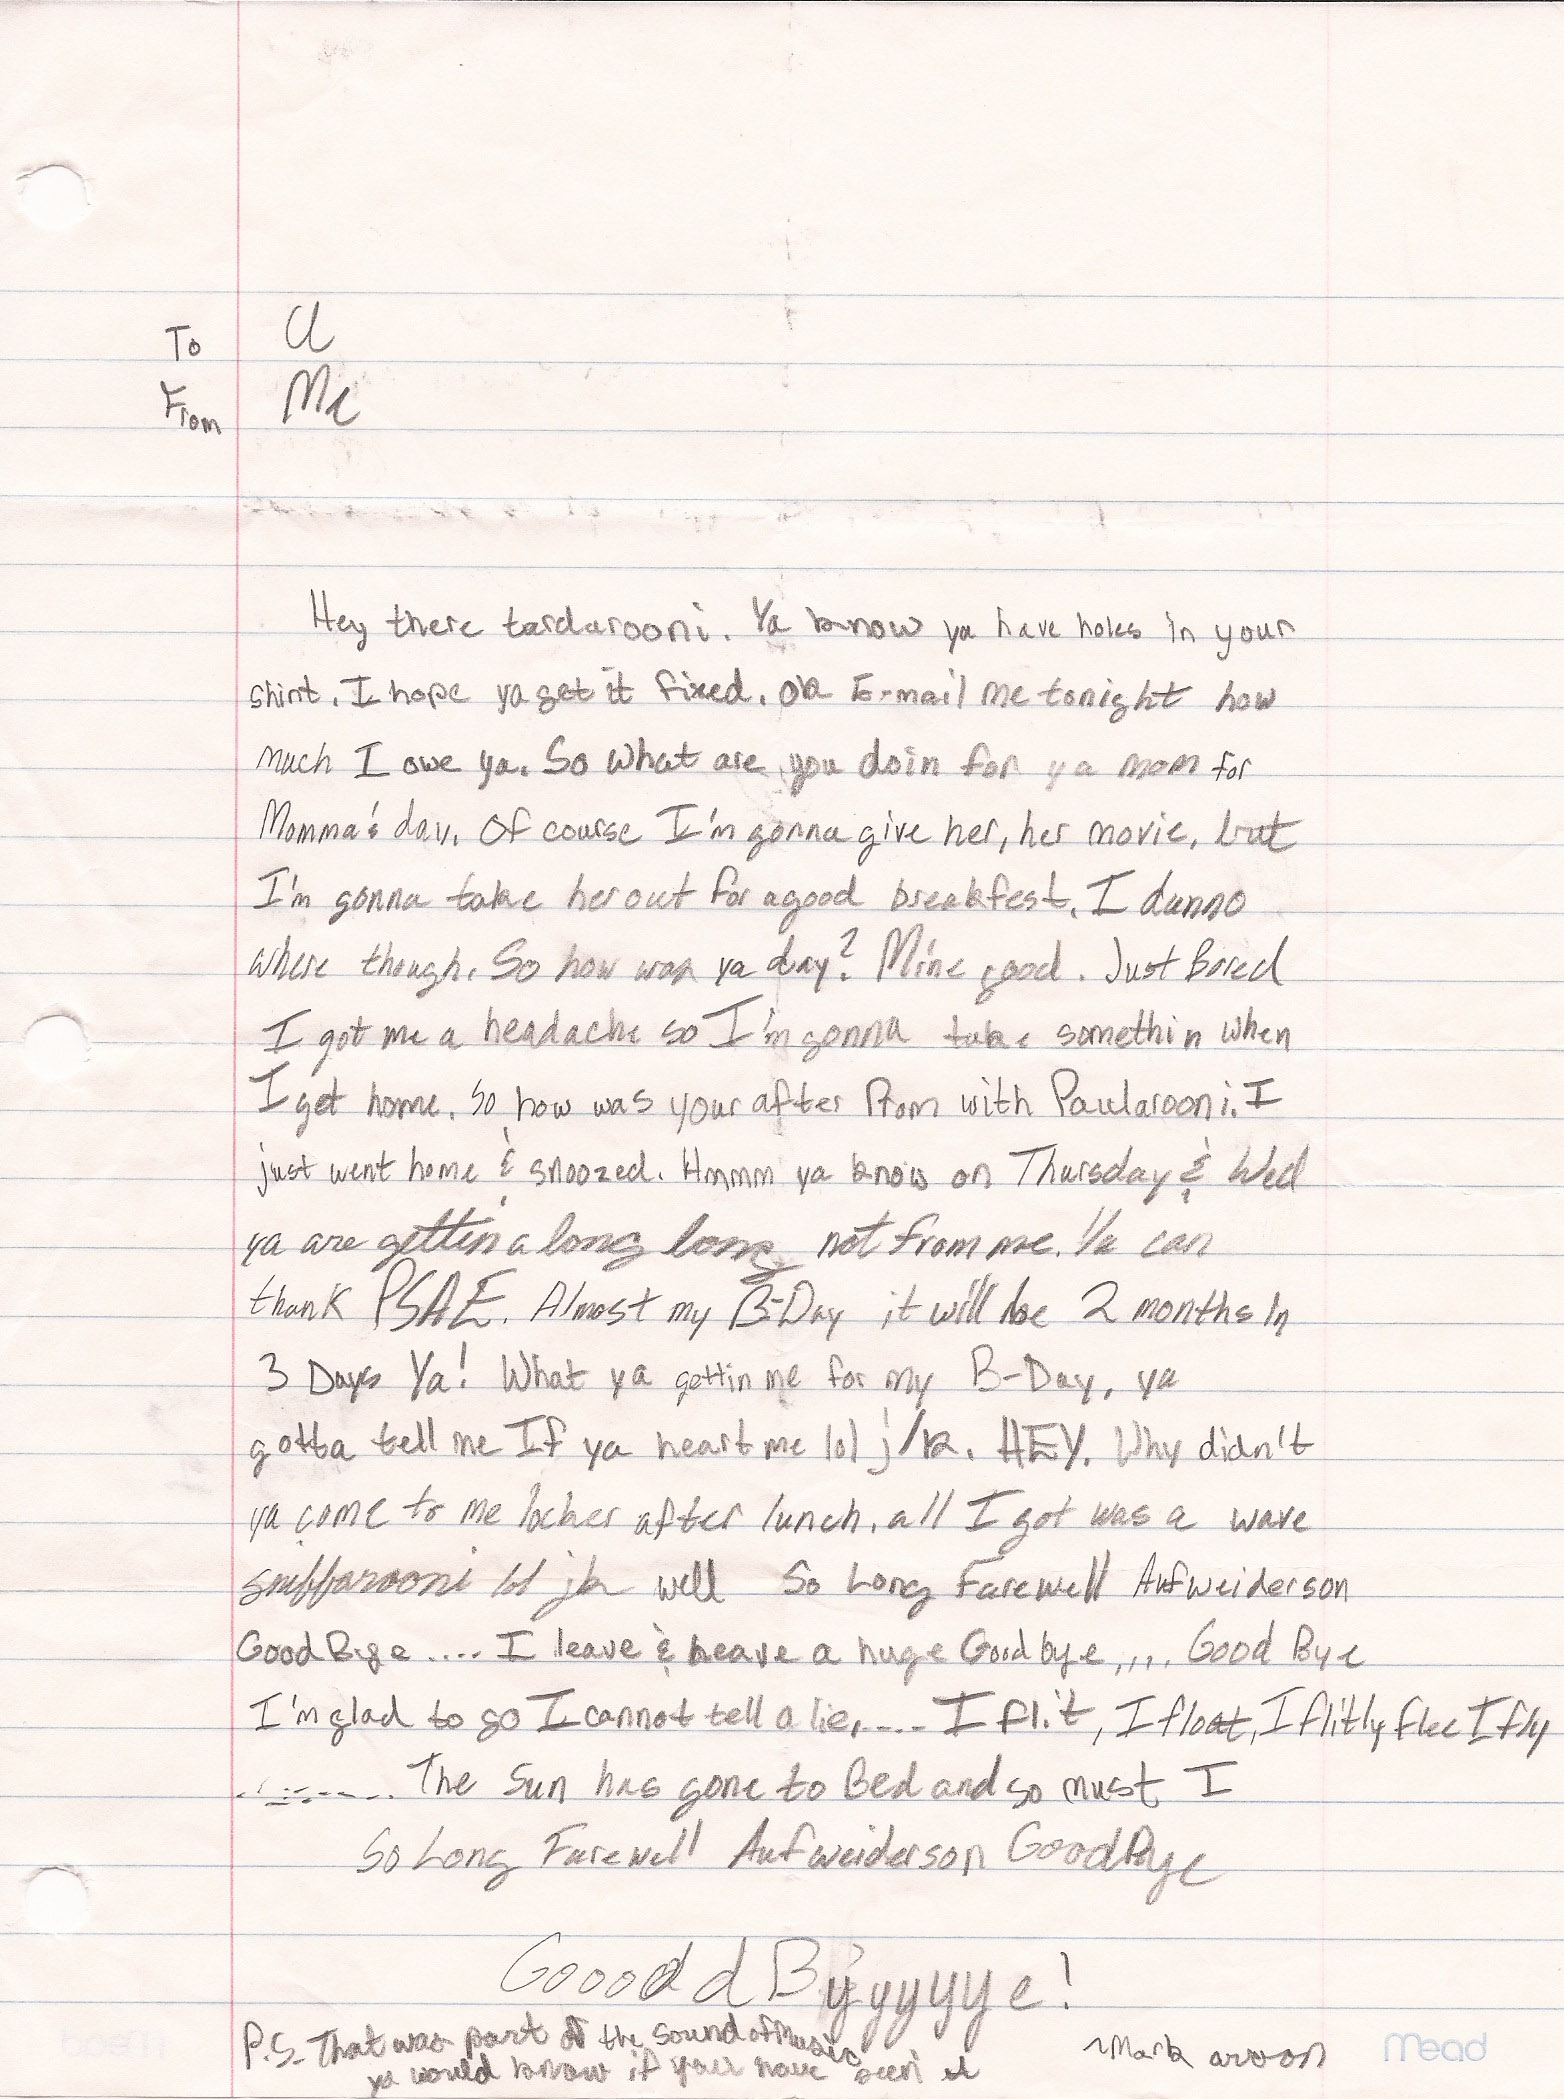 To U
From Me
Hey there tardarooni. Ya know ya have holes in your
shirt. I hope ya get it fixed. Ok E-mail me tonight how
much I owe ya. So what are you doin for ya mom for
Momma's day. Of course I'm gonna give her, her movie, but
I'm gonna take her out for a good breakfest. I dunno
where though. So how was ya day? Mine good. Just Bored
I got me a headache so I'm gonna take somethin when
I get home. So how was your after Prom with Paularooni. I
just went home & snoozed. Hmmm ya know on Thursday & Wed
ya are gettin a long long not from me. Ya can
thank PSAE. Almost my B-Day it will be 2 months in
3 Days Ya! What ya gettin me for my B-Day, ya
gotta tell me If ya heart me lol j/k. HEY. Why didn't
ya come to me locker after lunch. all I got was a wave
sniffarooni lol jk well So Long Farewell Aufweiderson
Good Bye .... I leave & heave a huge Goodbye .... Good Bye
I'm glad to go I cannot tell a lie..... I flit, I float, I flitly flee I fly
......... The Sun has gone to Bed and so must I
So Long Farewell Aufweiderson GoodBye
Gooood d Byyyyyye!
P.S. That was part of the Sound of Music
ya would know if your have seen it
~Mark aroon
Mead